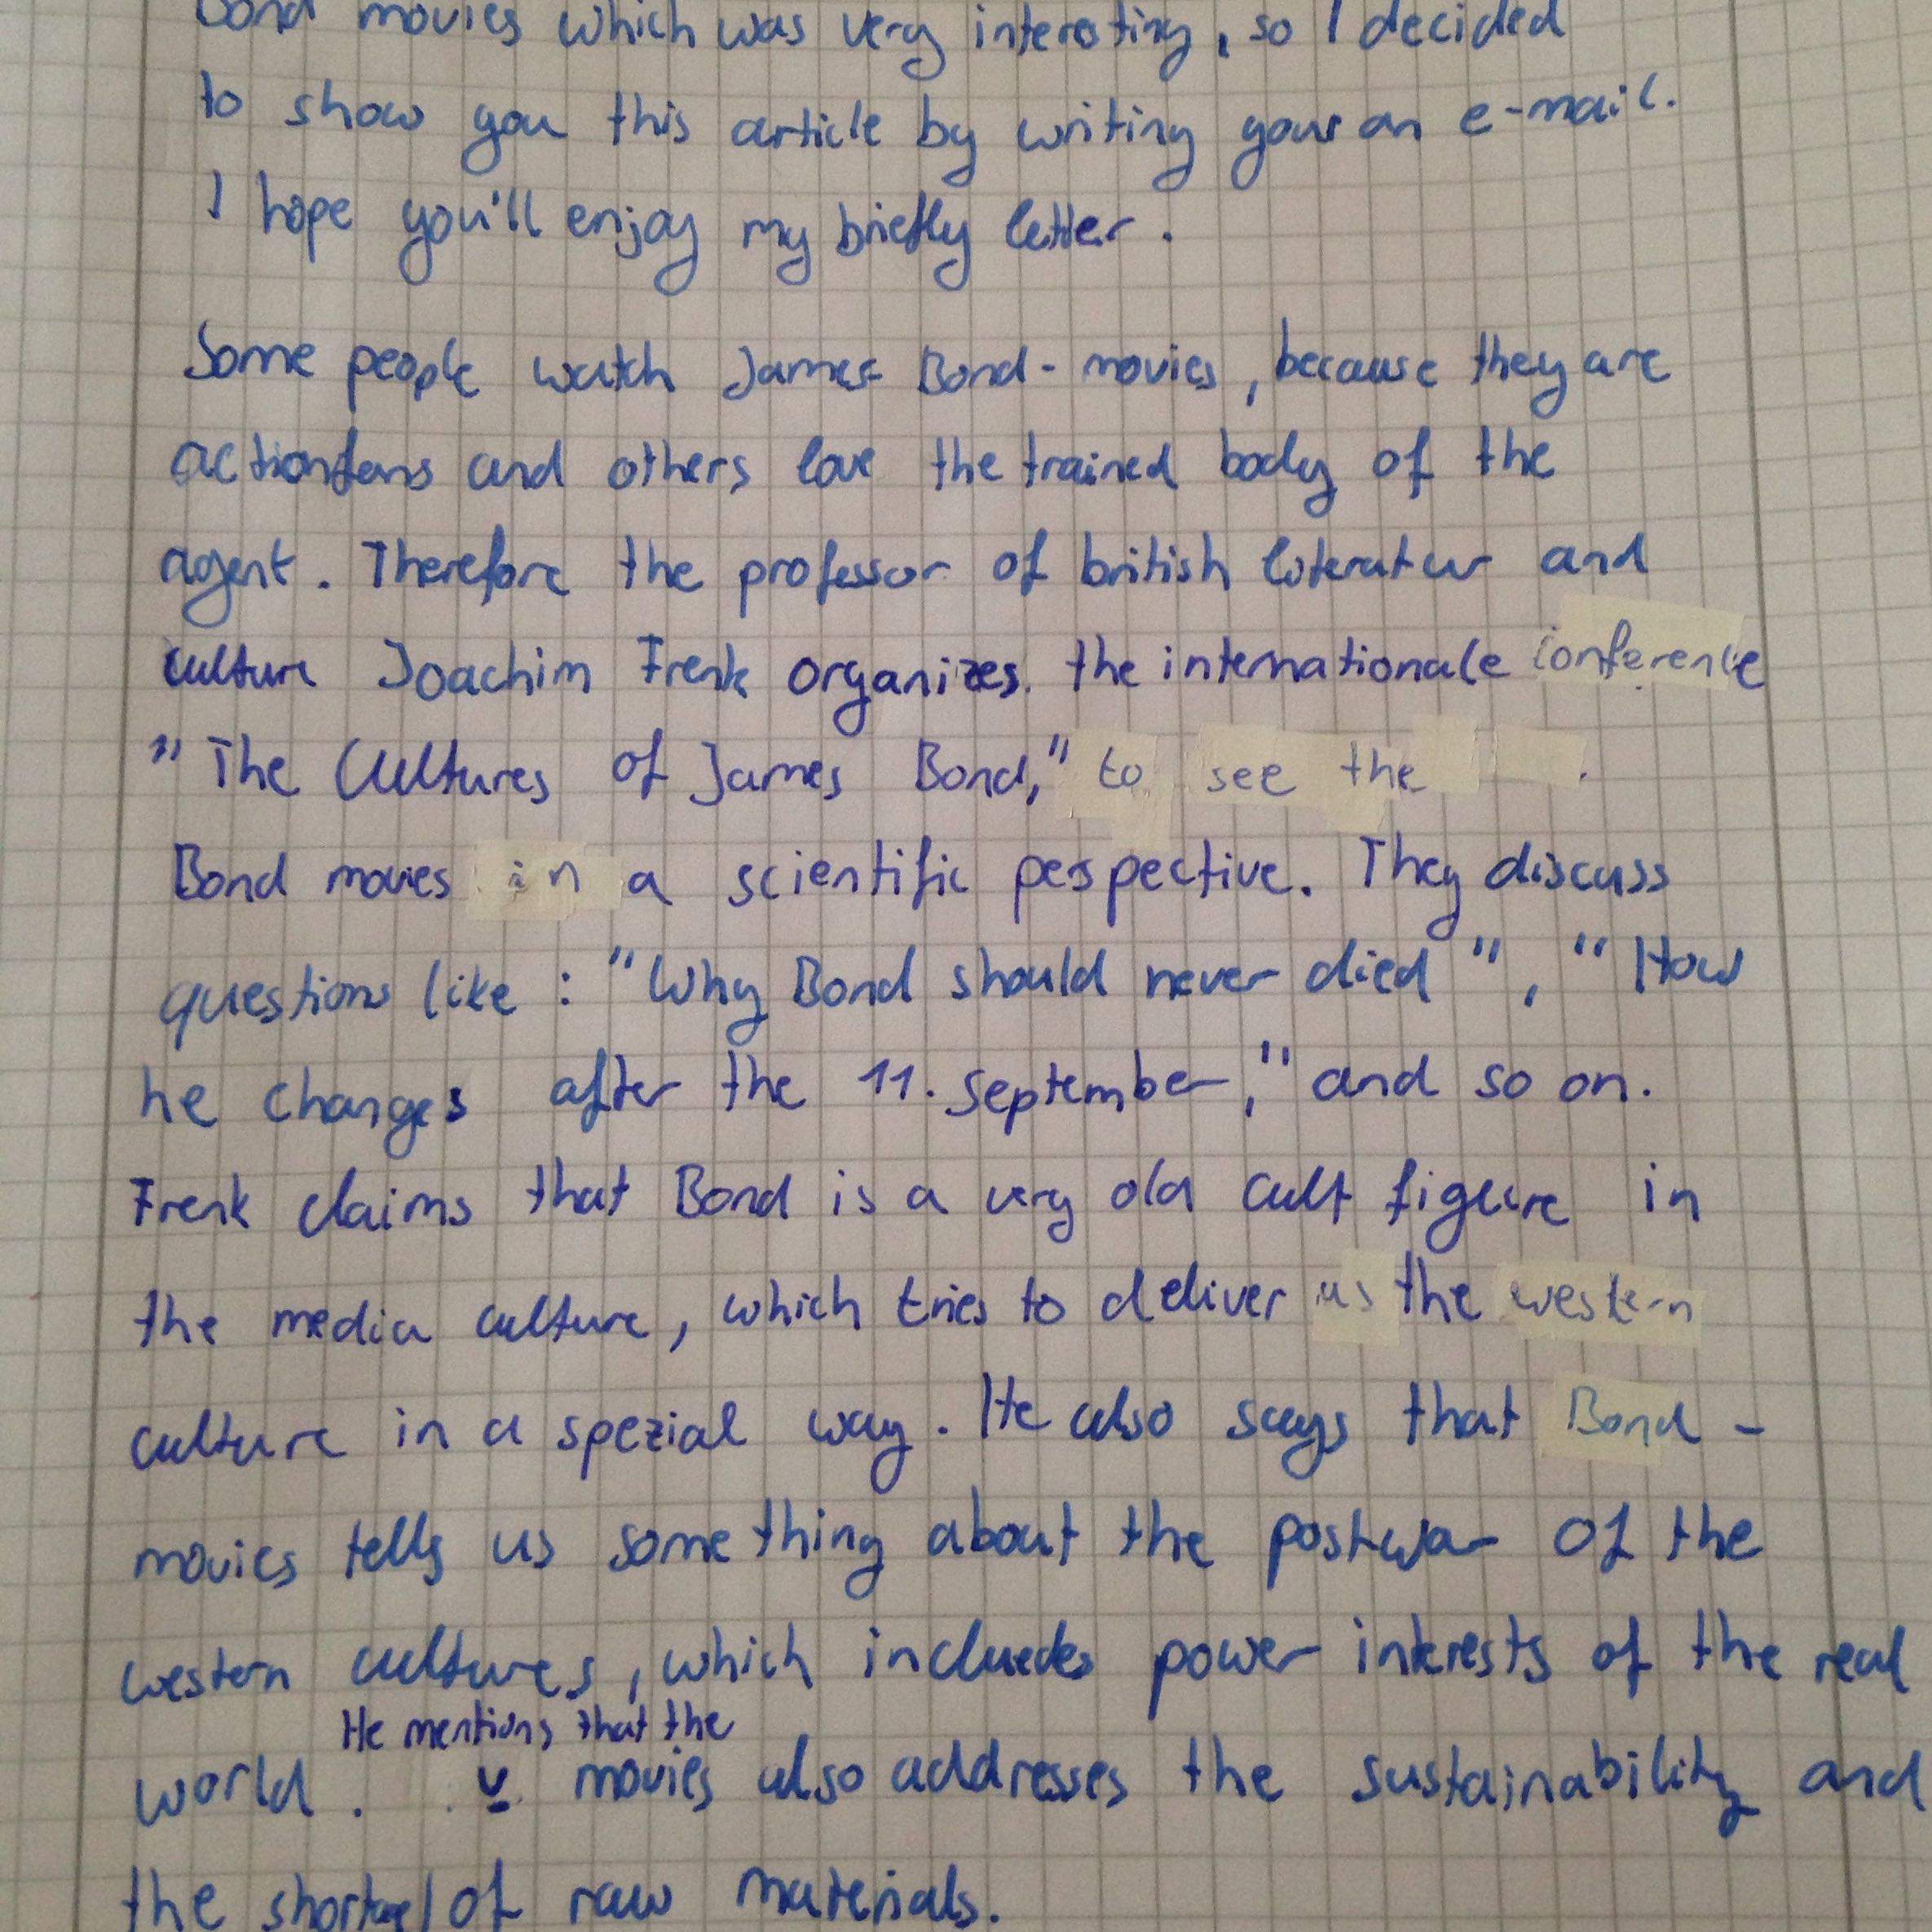 Bond movies which was very interesting, so I decided
to show you this article by writing your an e-mail.
I hope you'll enjoy my briefly letter.
Some people watch James Bond-movies, because they are
actionfans and others love the trained body of the
agent. Therefore the professor of british literatur and
culture Joachim Frenk organizes the internationale conference
"The Cultures of James Bond," to see the
Bond movies in a scientific perspective. They discuss
questions like: "Why Bond should never died", "How
he changes after the 11. September," and so on.
Frenk claims that Bond is a very old cult figure in
the media culture, which tries to deliver us the western
culture in a spezial way. He also says that Bond-
movies tells us something about the postwar of the
western cultures, which includes power interests of the real
He mentions that the
world. movies also addresses the sustainability and
the of raw materials.